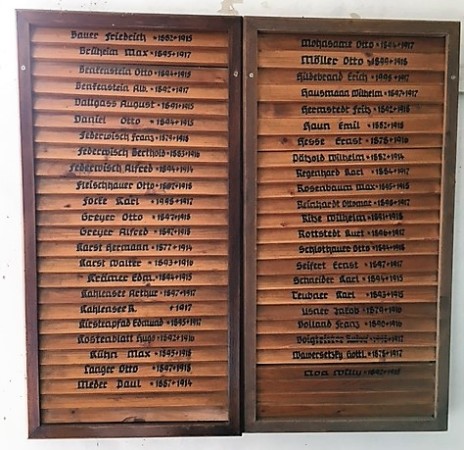 Bauer Friedrich *1882+1915
Brüheim Max *1895+1917
Benkenstein Otto *1894+1915
Benkenstein Alb. *1892+1917
Dallgass August *1891+1915
Daniel Otto *1894+1915
Federwisch Franz *1879+1918
Federwisch Berthold *1883+1916
Federwisch Alfred *1894+1914
Fleischhauer Otto
Forke Karl +1917
Greyer Otto *1897+1918
Greyer Alfred +1918
Karst Hermann *1877+1914
Karst Walter *1893+1916
Krämer Edm. *1884+1915
Kahlensee Arthur *1897+1917
Kahlensee R. +1917
Kirstenpfad Edmund *1895+1917
Kostenblatt Hugo +1916
Kühn Max *1895+1918
Langer Otto *1897+1918
Meder Paul *1887+1914
Mohnsame Otto +1917
Möller Otto *1899+1918
Hildebrand Erich +1917
Hausmann Wilhelm *1897+1917
Hermstedt Fritz +1918
Haun Emil *1887+1918
Hesse Ernst *1878+1916
Pätzold Wilhelm +1914
Regenhard Karl *1884+1917
Rosenbaum Max +1918
Reinhardt Ottomar
Ritze Wilhelm *1891+1918
Rottstedt Kurt +1917
Schlothauer Otto
Seifert Ernst +1917
Schneider Karl *1894+1915
Teubner Karl *1893+1915
Usner Jacob *1879+1916
Volland Franz +1916
Wawersetzky Gottl. *1878+1917